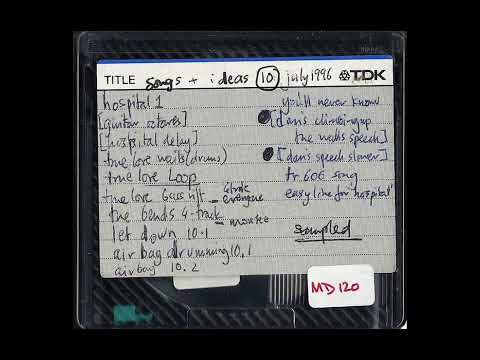 TITLE songs + ideas 10 july 1996 TDK
hospital 1
[guitar octaves]
[hospital delay]
true love waits (drums)
true love loop
true love bass riff -
the bends 4-track -
let down 10.1
air bag drumming 10.1
airbag 10.2
you'll never know
[dans climbing up
the walls speech]
[dans speech slower]
tr 606 song
easy line for "hospital"
sampled
MD120